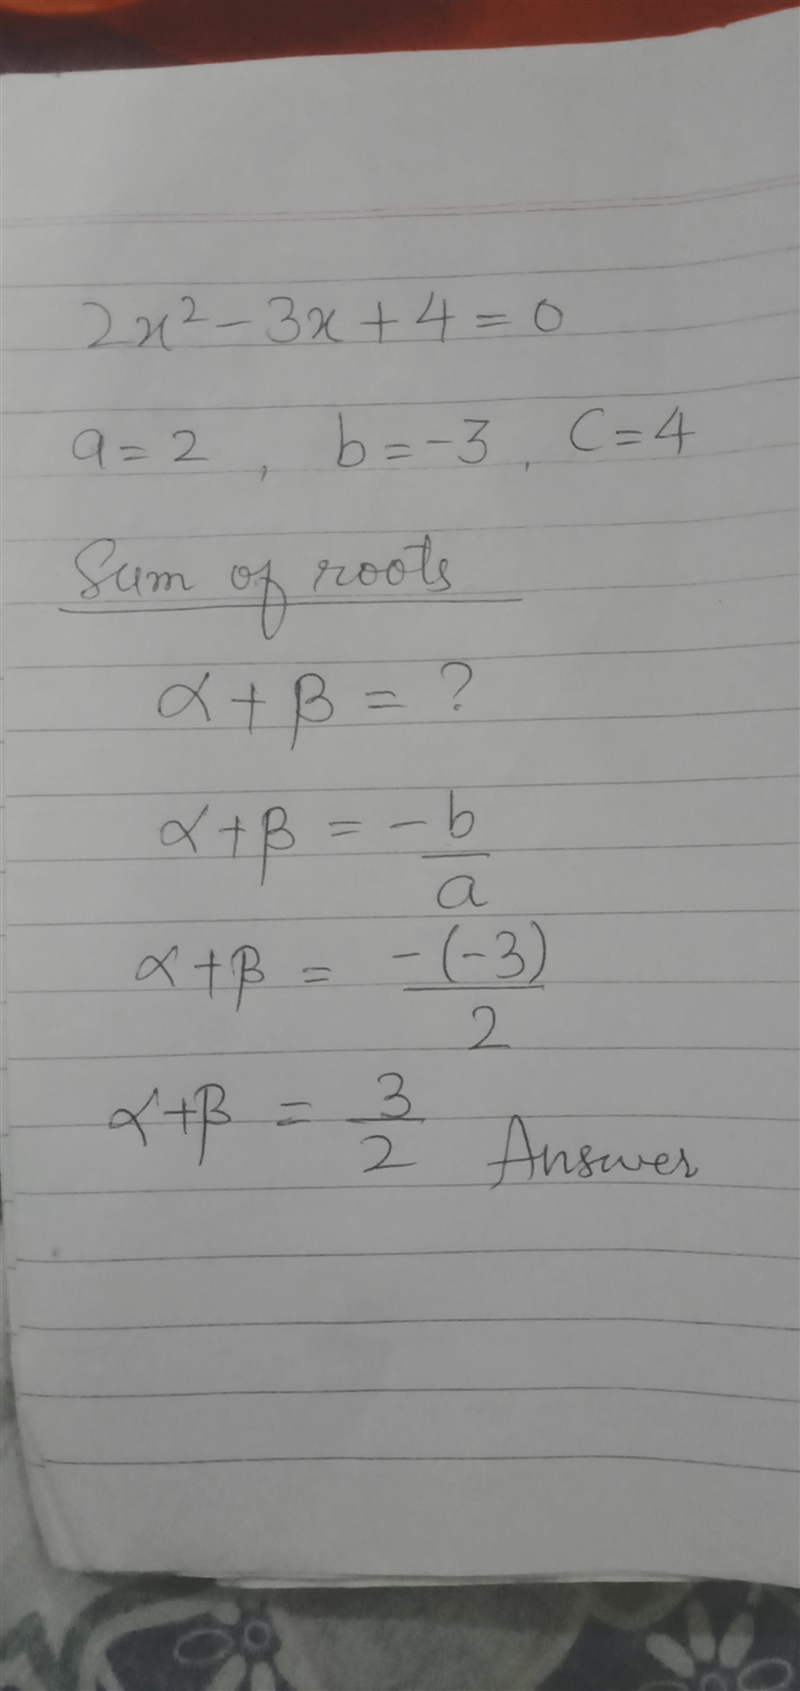 2x² - 3x + 4 = 0
a = 2 , b = -3 , C = 4
Sum of roots
α + β = ?
α + β = -b/a
α + β = -(-3)/2
α + β = 3/2 Answer